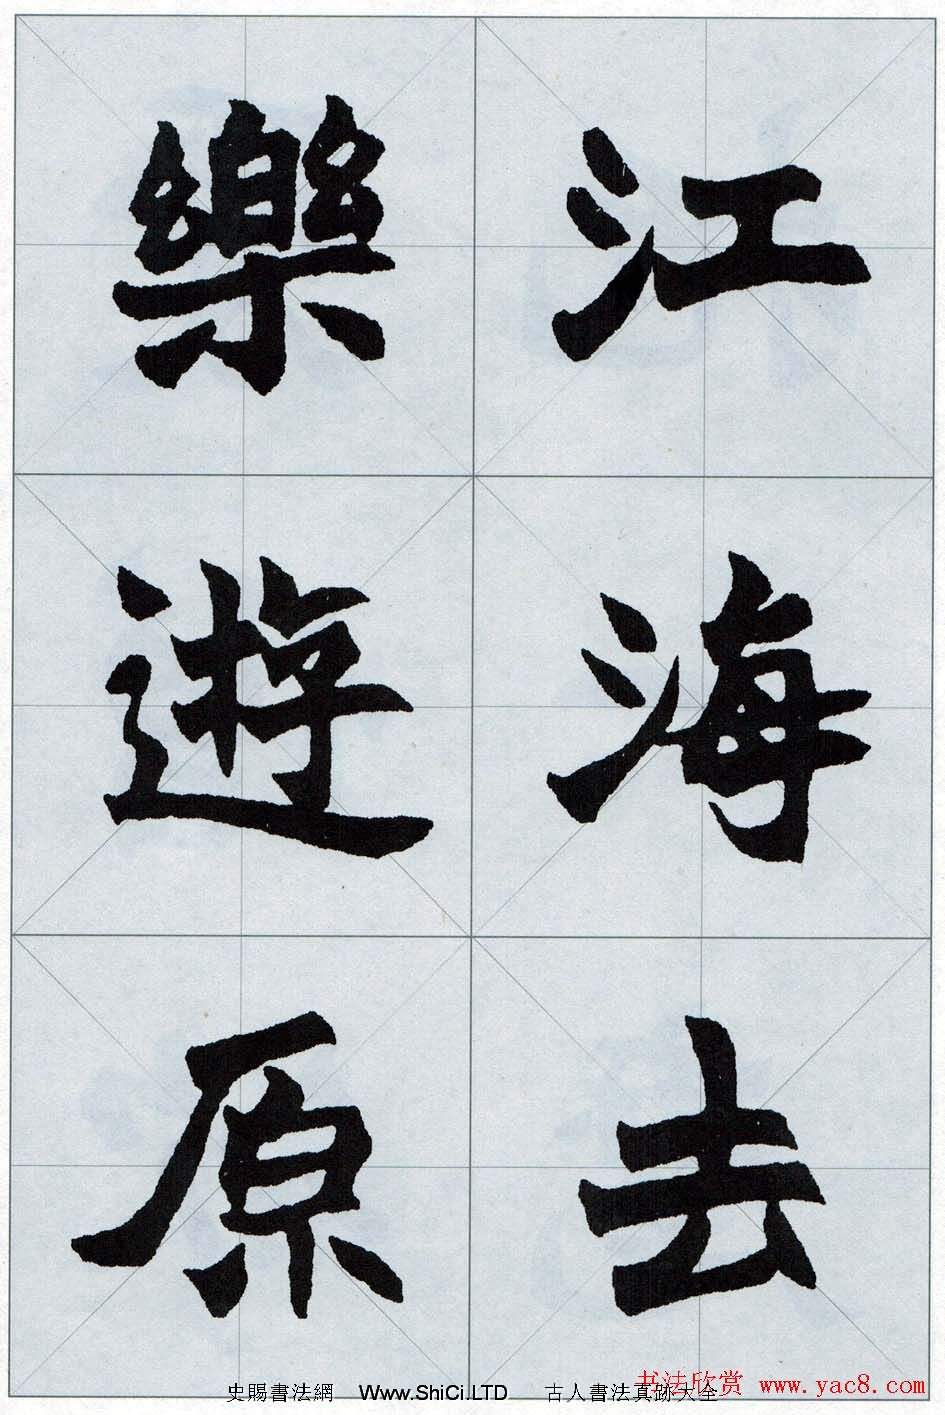 江海去
樂遊原
书法欣赏 www.yac8.com
史賜書法網 Www.ShiCi.LTD 古人書法真跡大全